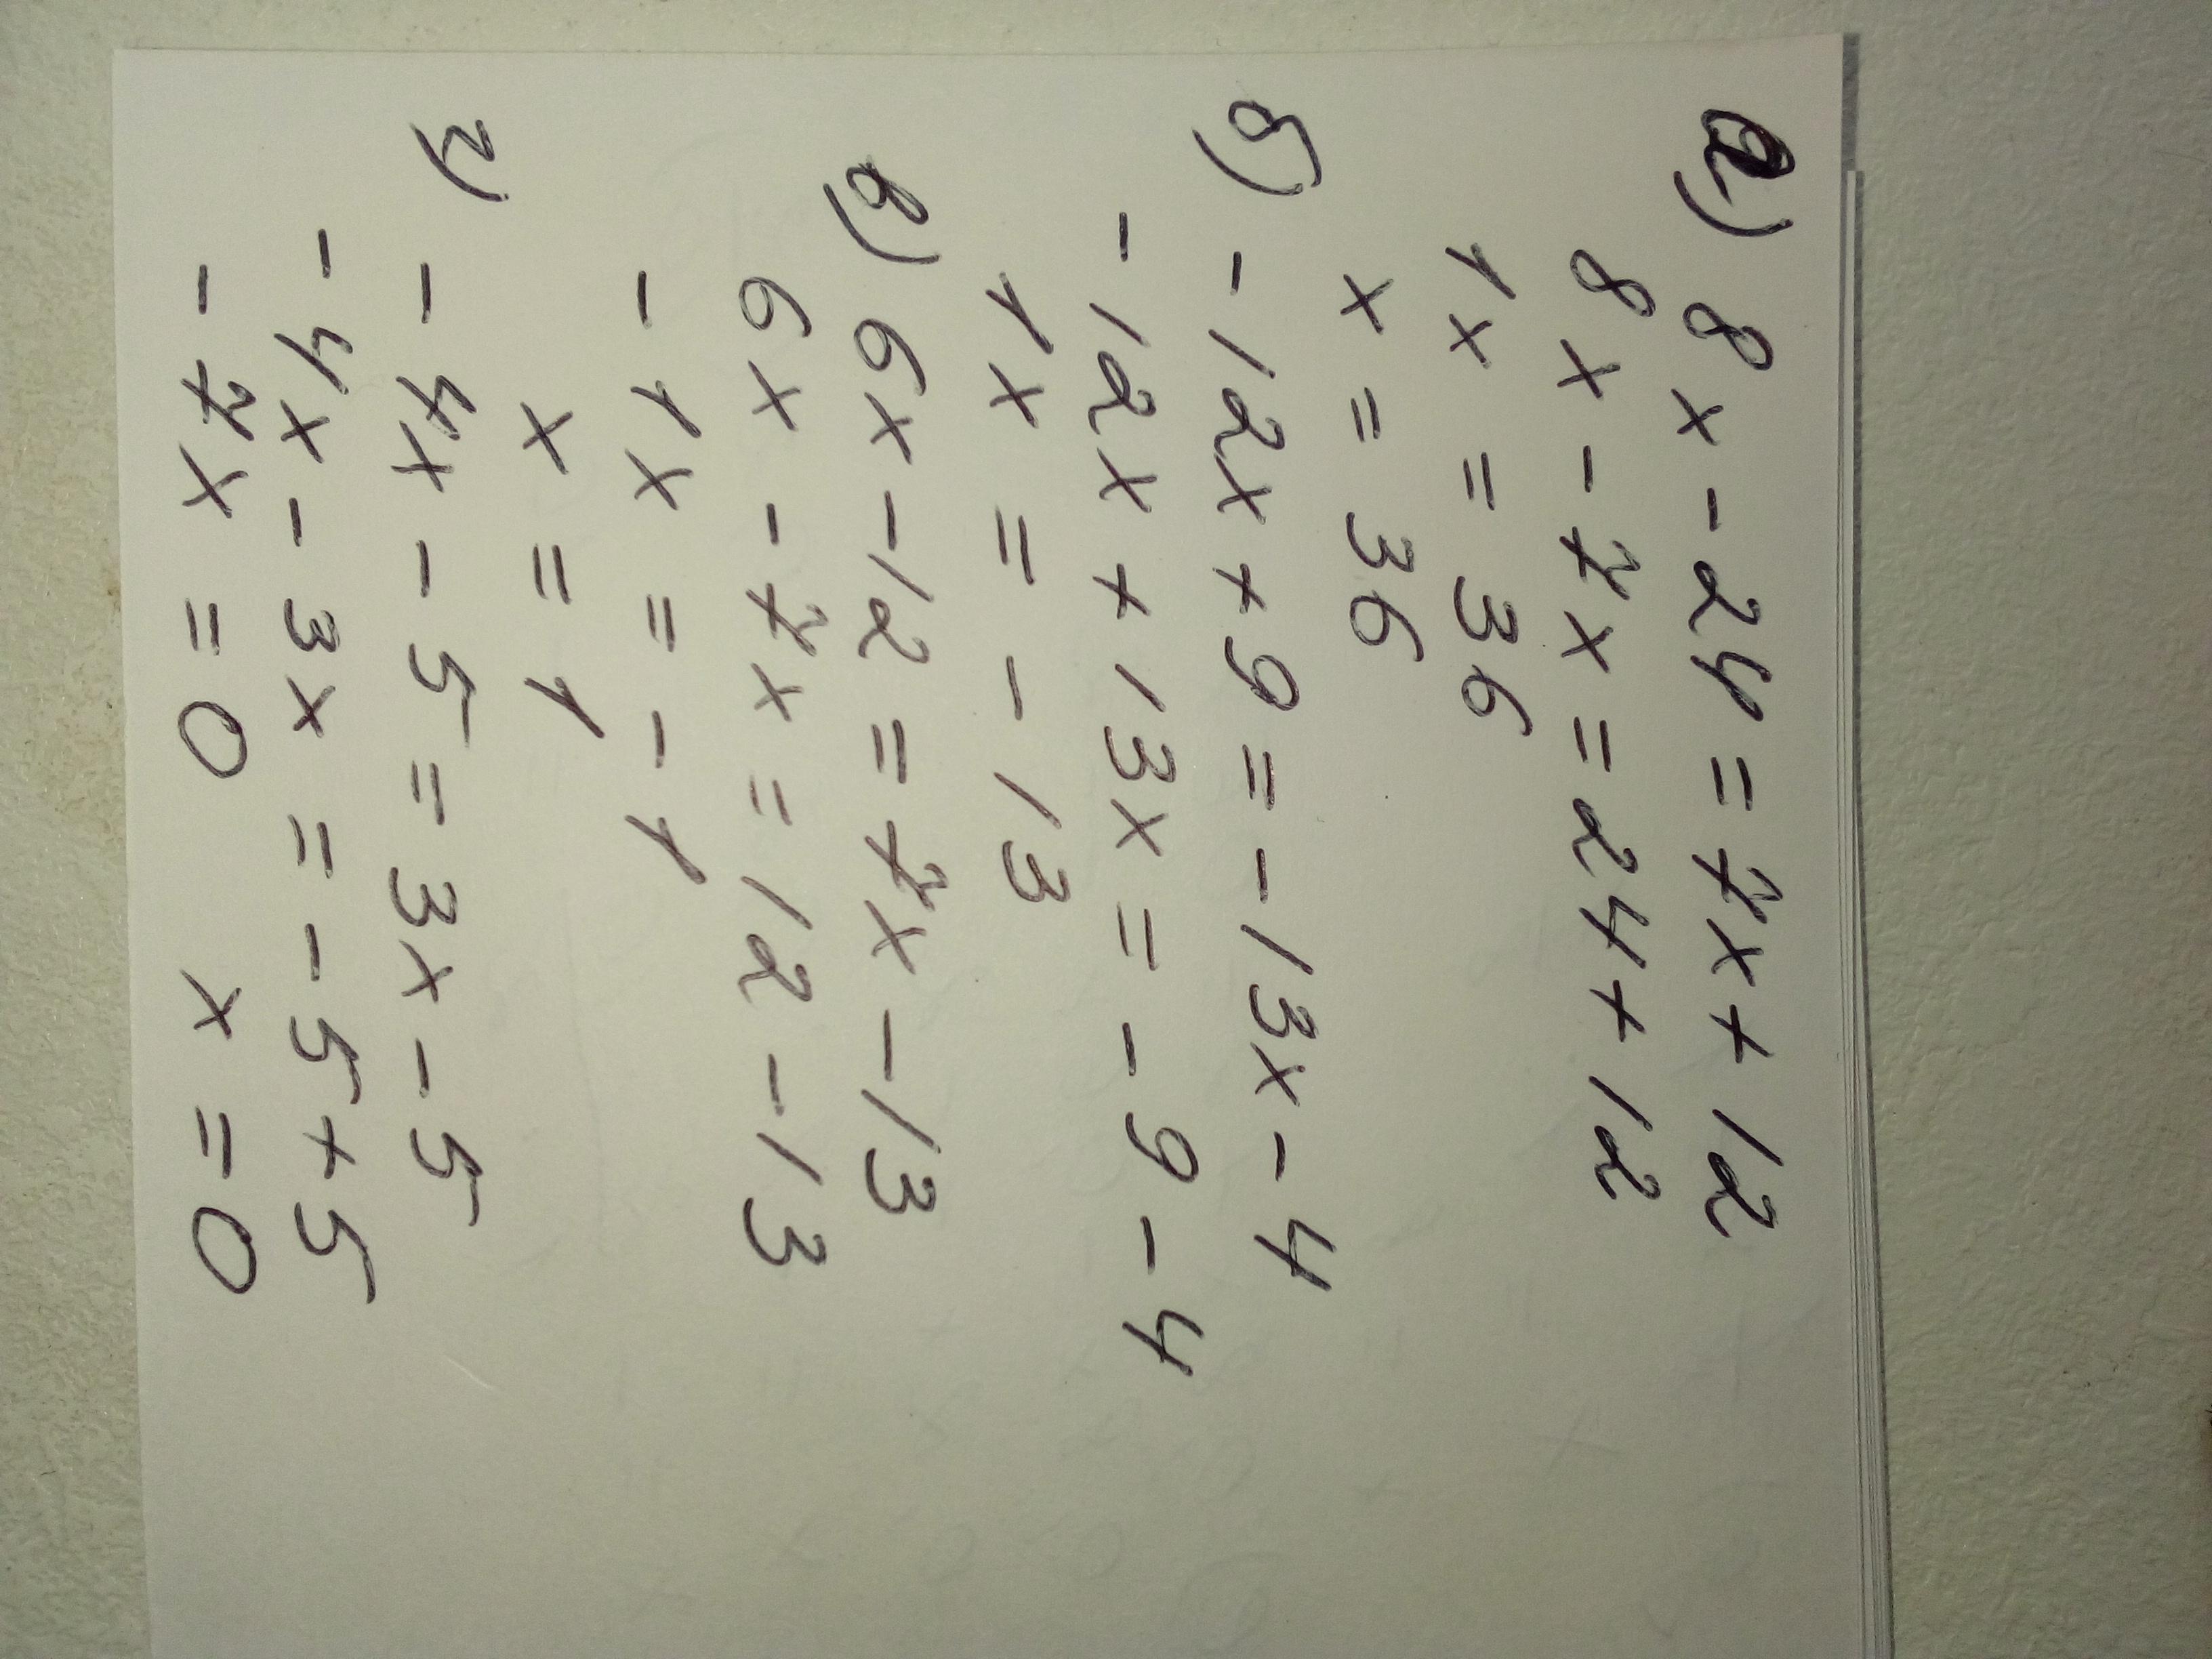 а) 8x - 24 = 7x + 12
8x - 7x = 24 + 12
1x = 36
x = 36
б) - 12x + 9 = - 13x - 4
- 12x + 13x = - 9 - 4
1x = - 13
в) 6x - 12 = 7x - 13
6x - 7x = 12 - 13
- 1x = - 1
x = 1
г) - 4x - 5 = 3x - 5
- 4x - 3x = - 5 + 5
- 7x = 0 x = 0